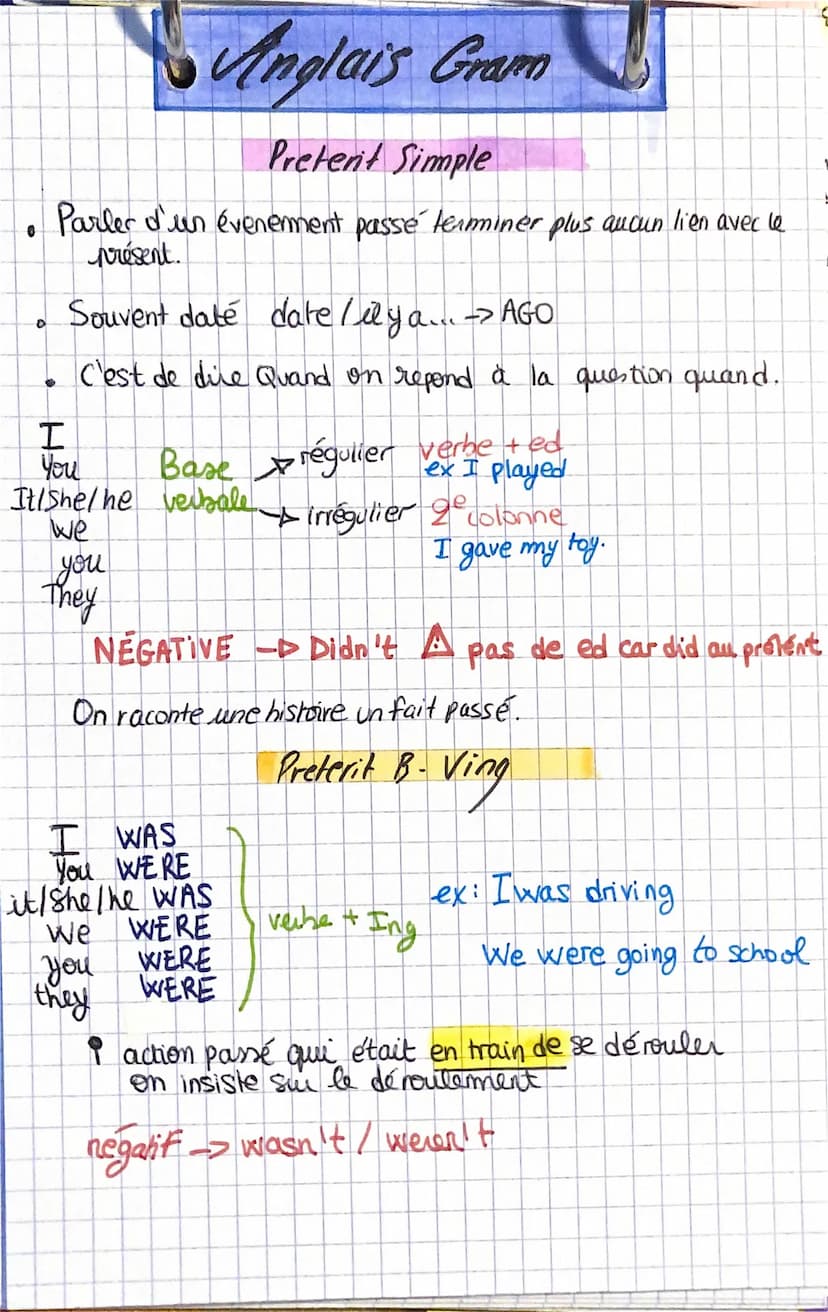 Anglais Gram
Preterit Simple
• Parler d'un évenement passé terminer plus aucun lien avec le
présent.
• Souvent daté date / il y a... -> AGO
• C'est de dire Quand on repond à la question quand.
I
You
It/She/he
We
you
They
Base
verbale
-> régulier verbe + ed
ex I played
-> irrégulier 2e colonne
I gave my toy.
NÉGATIVE -> Didn't ⚠ pas de ed car did au prétérit
On raconte une histoire un fait passé.
Preterit B- Ving
I WAS
You WERE
it/She/he WAS
We WERE
you WERE
they WERE
verbe + Ing
ex: I was driving
We were going to school
action passé qui était en train de se dérouler
on insiste sur le déroulement
négatif -> wasn't / weren't